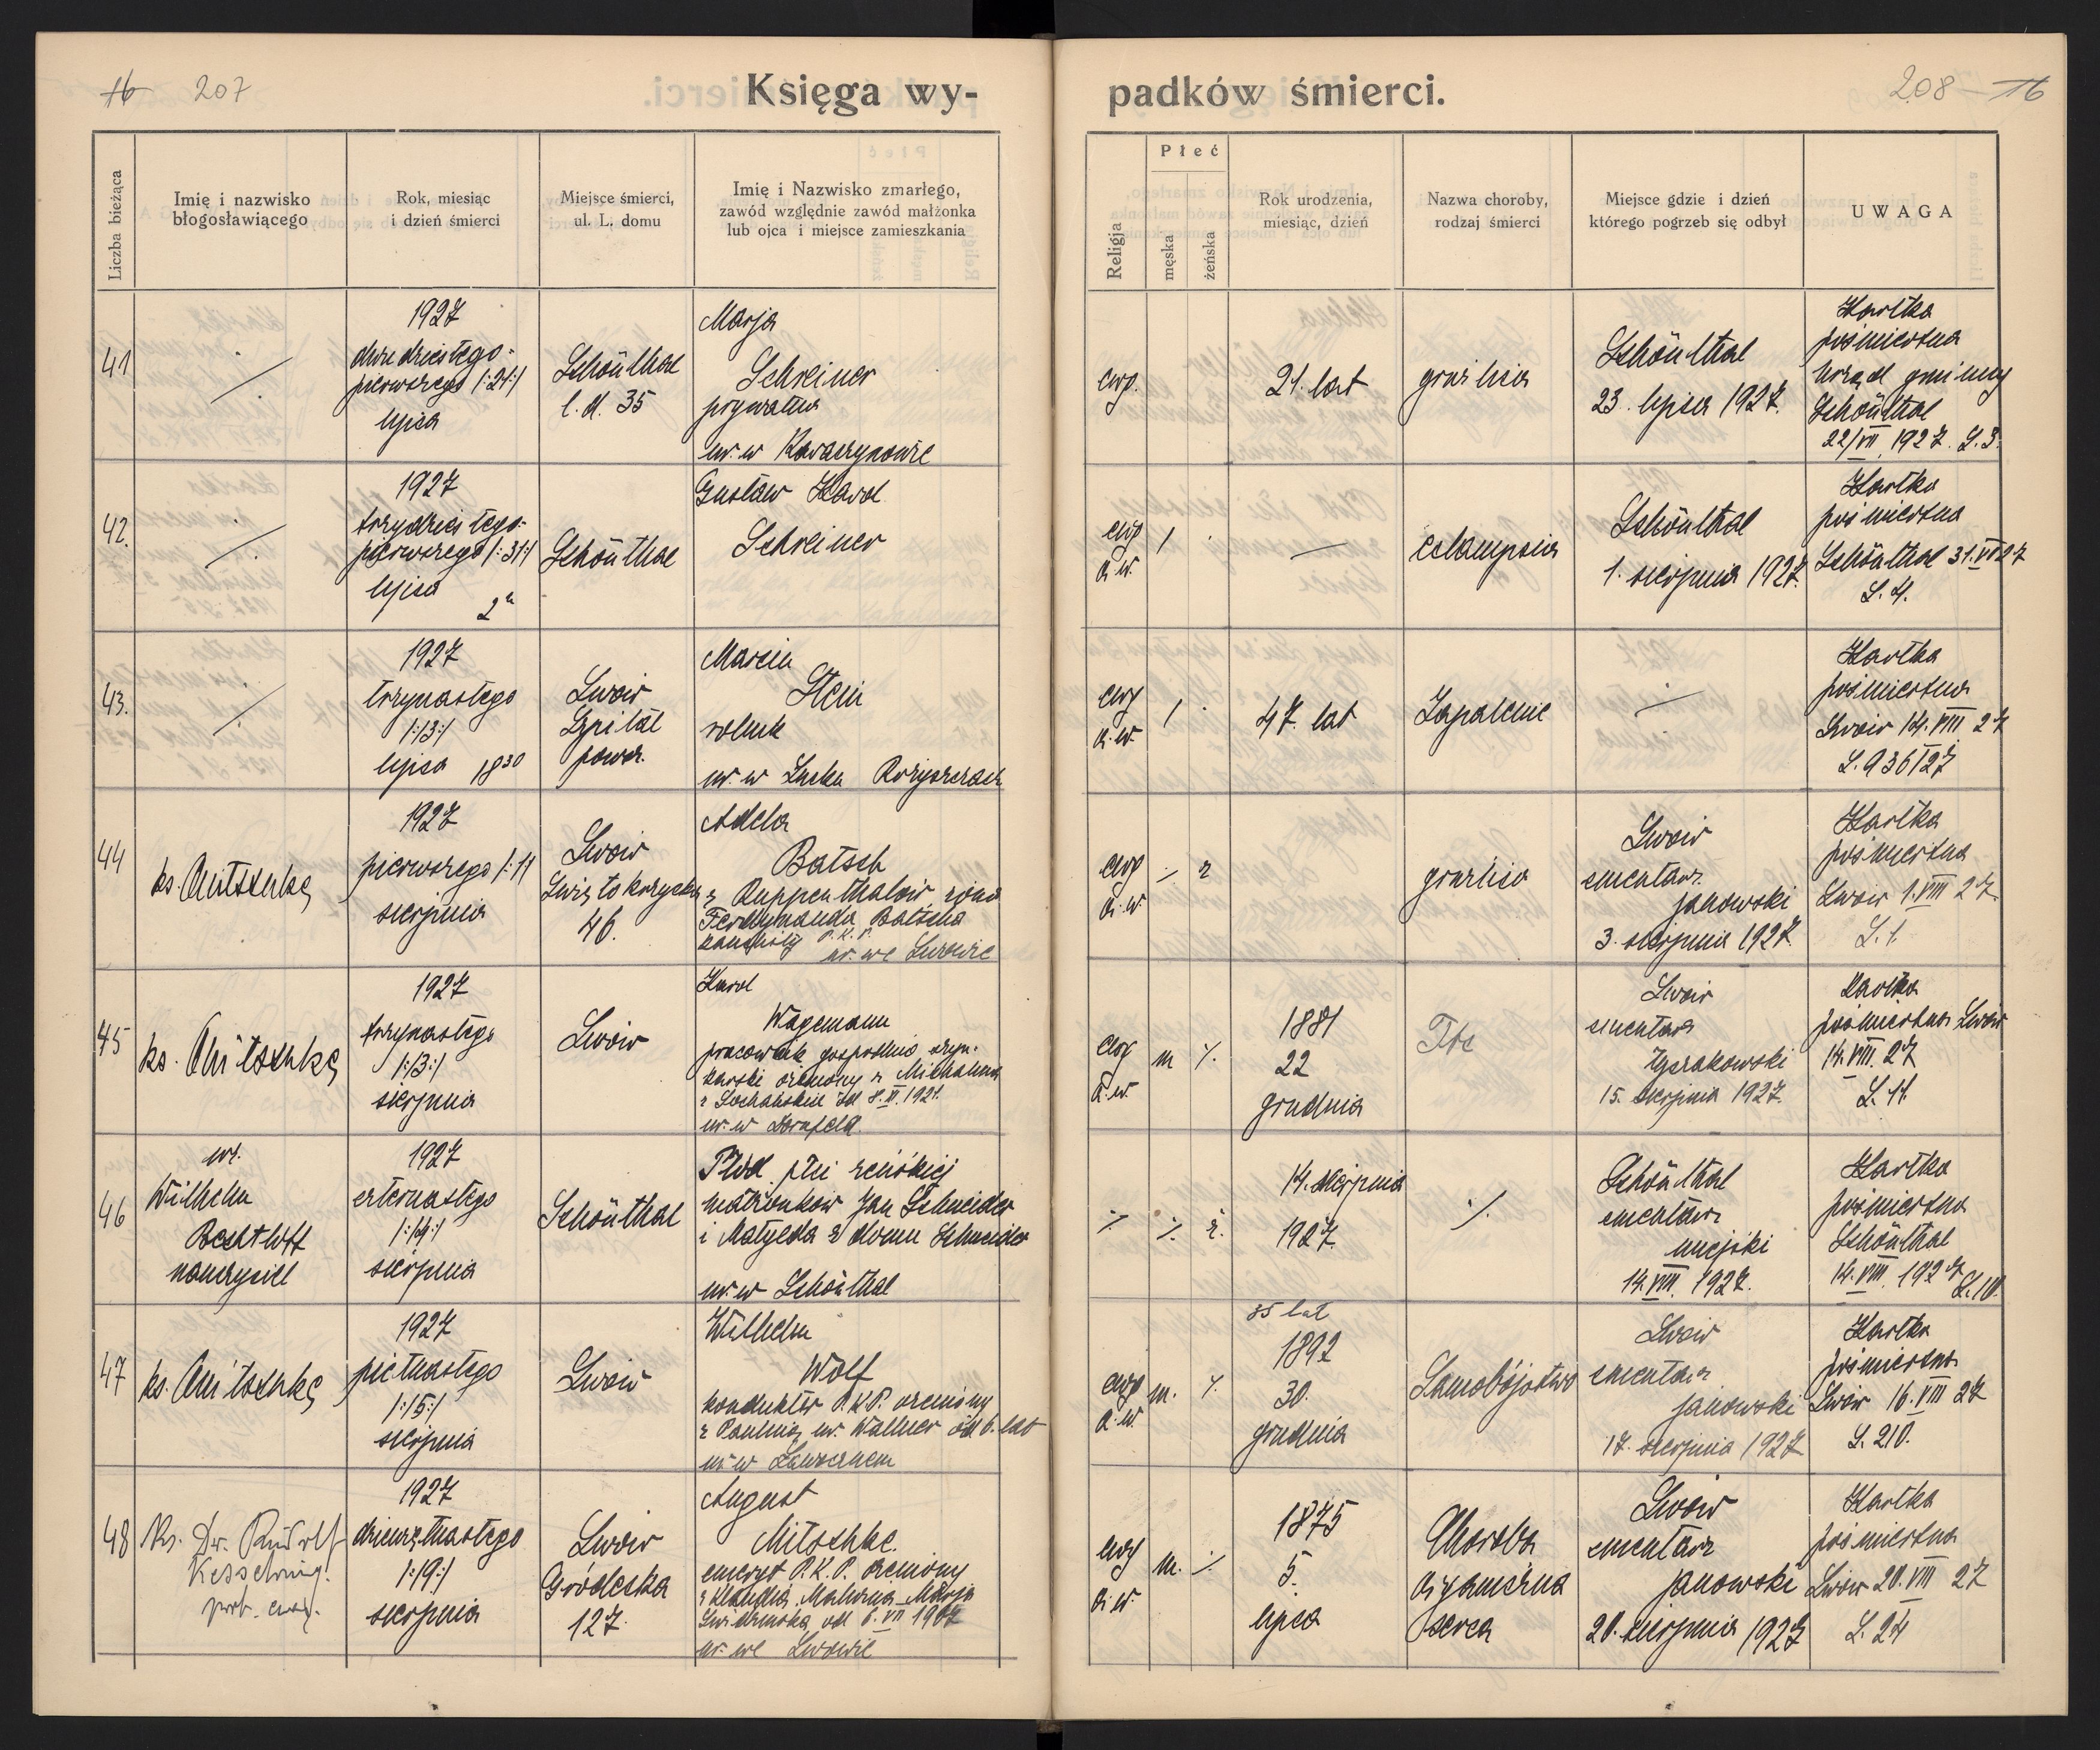 16 207
Księga wy-
padków śmierci.
208 16
Liczba bieżąca
Imię i nazwisko
błogosławiącego
Rok, miesiąc
i dzień śmierci
Miejsce śmierci,
ul. L. domu
Imię i Nazwisko zmarłego,
zawód względnie zawód małżonka
lub ojca i miejsce zamieszkania
Religja
Płeć
męska
żeńska
Rok urodzenia,
miesiąc, dzień
Nazwa choroby,
rodzaj śmierci
Miejsce gdzie i dzień
którego pogrzeb się odbył
UWAGA
41
1927
dwudziestego-
pierwszego /:21:/
lipca
Schönthal
l. d. 35
Marja
Schreiner
prywatna
ur. w
ewg.
21. lat
gruźlica
Schönthal
23. lipca 1927.
Kartka
pośmiertna
Urząd gminny
Schönthal
22/VII. 1927. L.3.
42.
1927
trzydziestego-
pierwszego /:31:/
lipca
Schönthal
Gustaw Karol
Schreiner
ewg
a.w.
/
—
eclampsia
Schönthal
1. sierpnia 1927.
Kartka
pośmiertna
Schönthal 31.VII 27
L. 4.
43.
1927
trzynastego
/:13:/
lipca 18³⁰
Lwów
Szpital
powsz.
Marcin
Stein
rolnik
ur. w
ewg
a.w.
/
47. lat
Zapalenie
Kartka
pośmiertna
Lwów 14. VIII 27
L. 936/27
44
ks. Mitschke
1927
pierwszego /:1:/
sierpnia
Lwów
Świętokrzyska
46.
Adela
Batsch
z Ruppenthalów żona
Ferdynanda Batscha
P.K.P.
ur. we Lwowie
ewg
a.w.
gruźlica
Lwów
cmentarz
janowski
3. sierpnia 1927.
Kartka
pośmiertna
Lwów 1. VIII 27.
L. 1.
45
ks. Mitschke
1927
trzynastego
/:13:/
sierpnia
Lwów
Karol
Wagemann
pracownik
żonaty z
ur. w Dornfeld.
ewg
a.w.
m
1881
22
grudnia
Tbc
Lwów
cmentarz
łyczakowski
15. sierpnia 1927.
Kartka
pośmiertna Lwów
14. VIII. 27
L. 11.
46
wr.
Wilhelm
Bechtloff
nauczyciel
1927
czternastego
/:14:/
sierpnia
Schönthal
Płód płci żeńskiej
małżonków Jan Schneider
i Matylda z domu Schneider
ur. w Schönthal
ż.
14. sierpnia
1927.
Schönthal
cmentarz
miejski
14. VIII. 1927.
Kartka
pośmiertna
Schönthal
14. VIII. 1927
L. 10.
47
ks. Mitschke
1927
piętnastego
/:15:/
sierpnia
Lwów
Wilhelm
Wolf
konduktor P.K.P. ożeniony
z Pauliną ur. Wallner od 6. lat
ur. w Ławocznem
ewg
a.w
m.
35 lat
1892
30.
grudnia
Samobójstwo
Lwów
cmentarz
janowski
17. sierpnia 1927
Kartka
pośmiertna
Lwów 16. VIII 27
L. 210.
48
Ks. Dr. Rudolf
Kesselring.
prof. ewg.
1927
dziewiętnastego
/:19:/
sierpnia
Lwów
Gródecka
127.
August
Mitschke.
emeryt P.K.P. ożeniony
z Klaudią Malwiną Marją
od 6. VII 1907
ur. we Lwowie
ewg
a.w.
m.
1875
5.
lipca
Choroba
organiczna
serca
Lwów
cmentarz
janowski
20. sierpnia 1927
Kartka
pośmiertna
Lwów 20. VIII 27
L. 24